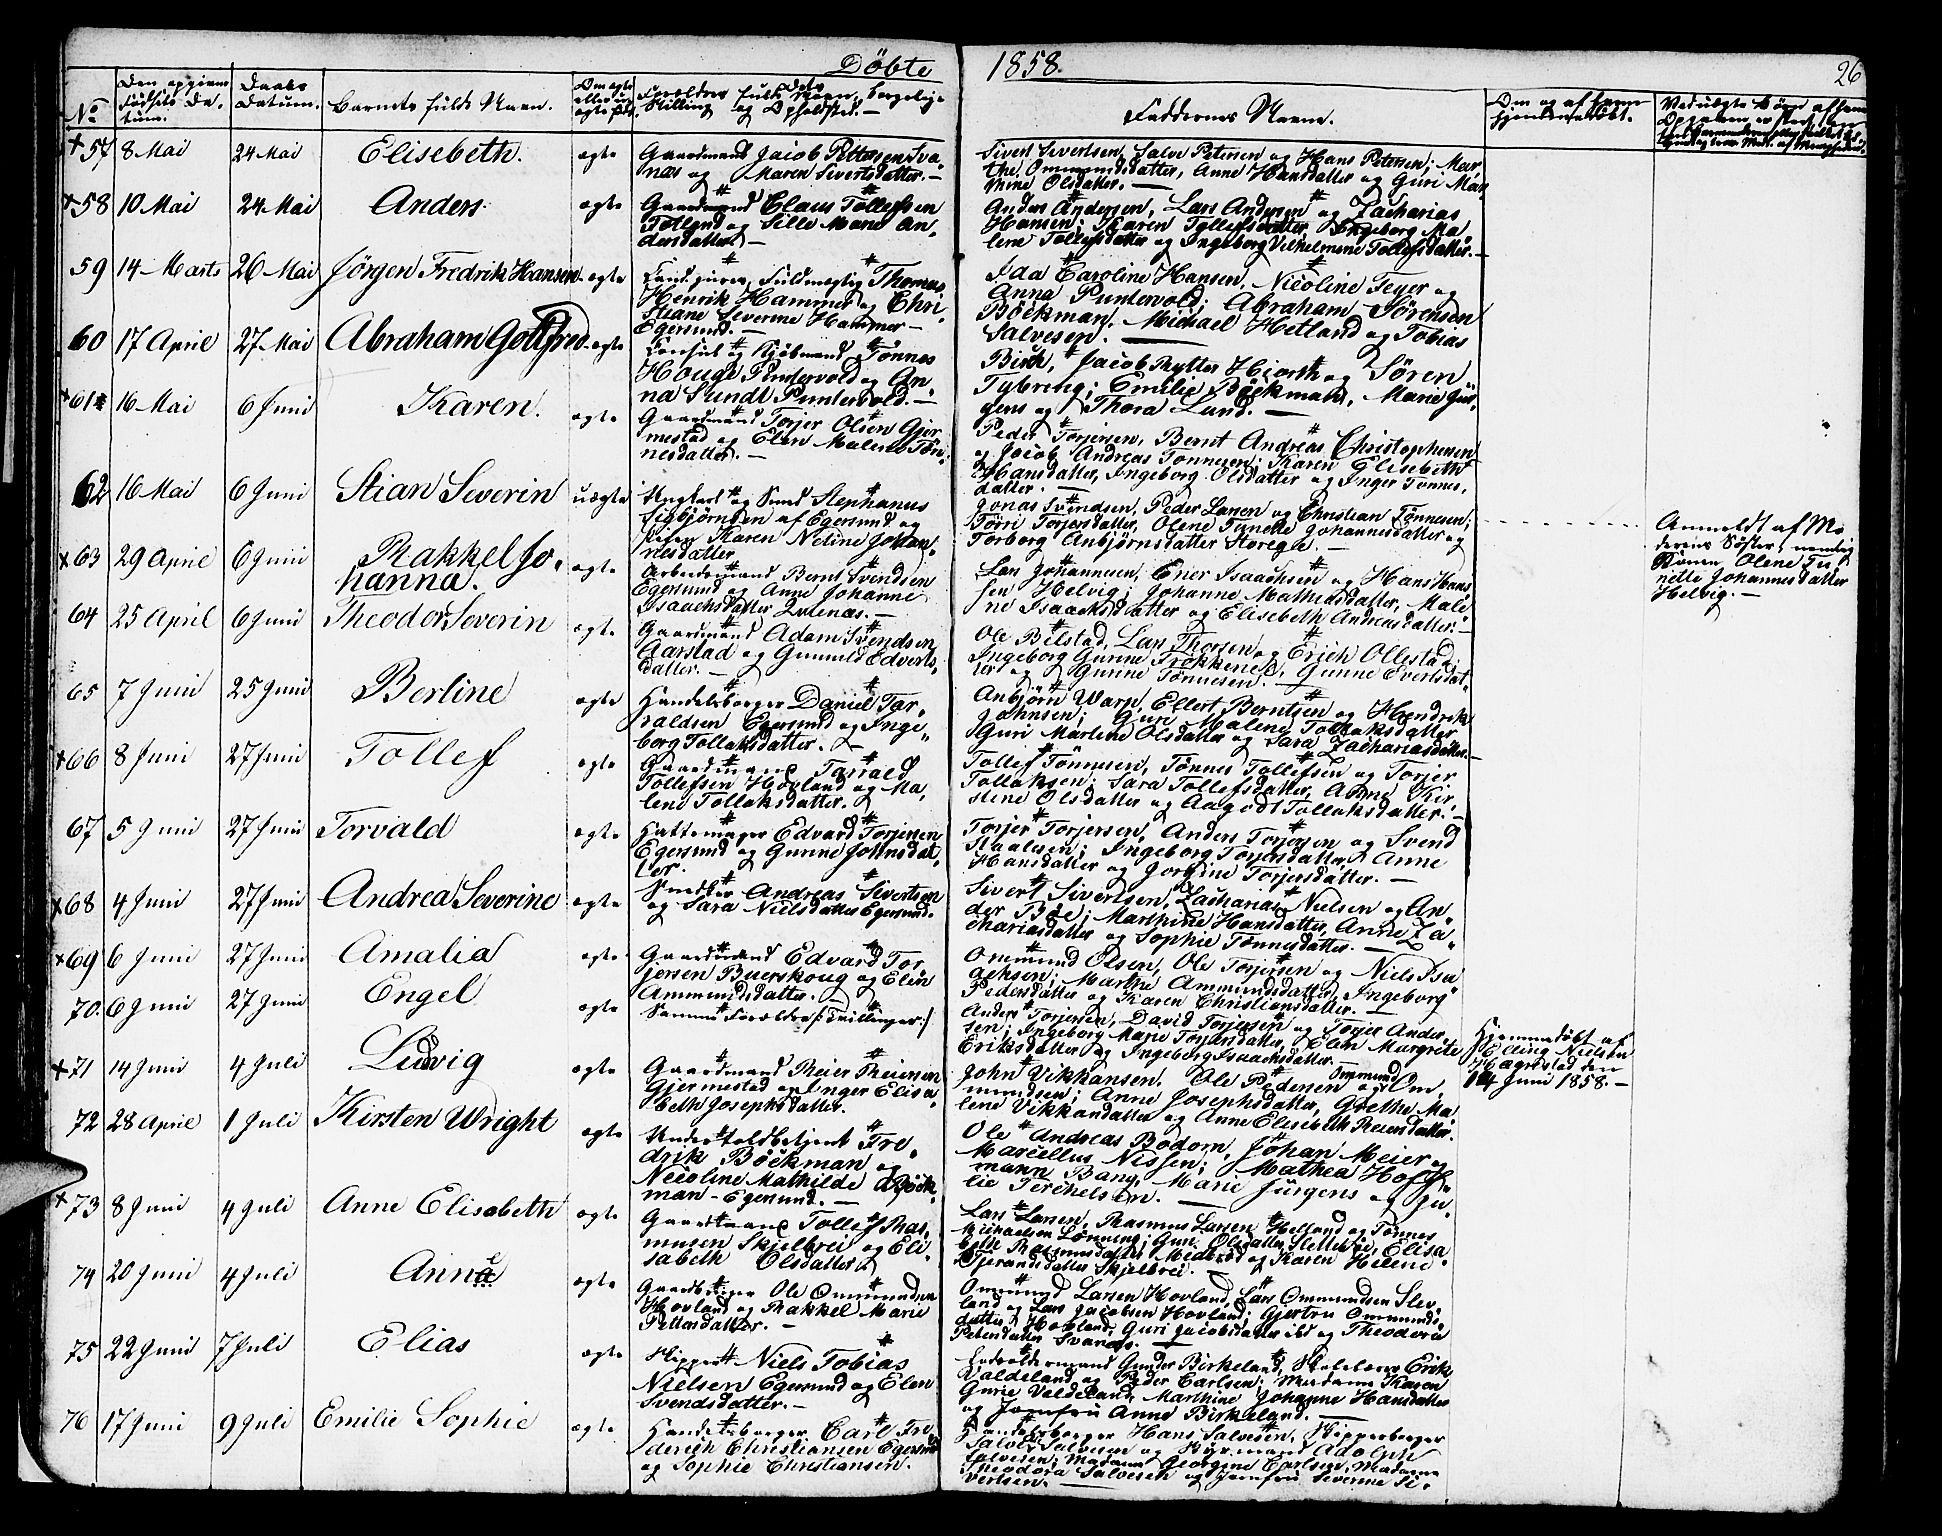 Döbte 1858. 26
No
Den opgivne Födsels Da, tum.
Daabs Datum.
Barnets fulde Navn.
Om ægte eller u ægte
Forældres fulde Navn, borgerlige Stilling og Opholdsted. —
Faddernes Navne.
Om og af hvem Hjemmedöbt.
+57 8 Mai 24 Mai Elisebeth. ægte
Gaardmand Jacob Pettersen Sva,
næs og Maren Sivertsdatter. —
Sivert Sivertsen, Salve Petersen og Hans Petersen; Mar,
the Ommundsdatter, Anne Hansdatter og Guri Mar,
thine Olsdatter. —
+58 10 Mai 24 Mai Anders ægte
Gaardmand Claus Tollefsen
Tolland og Sille Marie An,
dersdatter —
Anders Andersen, Lars Andersen og Zacharias
Hansen; Karen Tollefsdatter, Ingeborg Ma,
lene Tollefsdatter og Ingeborg Vilhelmine Tollefsdatter. —
59 14 Marts 26 Mai Jörgen Fredrik Hansen ægte
Fuldmægtig Thomas
Henrik Hammer og Chri,
stiane Severine Hammer —
Egersund. —
Ida Caroline Hansen, Nicoline Feyer og
Anna Puntervold; Abraham Sörensen
Böckman, Michael Hetland og Tobias
Salvesen. —
60 17 April 27 Mai Abraham Gottfred ægte
Consul og Kjöbmand Tönnes
Houge Puntervold og An,
na Sundt Puntervold. —
Birch, Jacob Rytter Hiorth og Sören
Tybring; Emilie Böckman, Marie Jür,
gens og Thora Lund. —
+61 16 Mai 6 Juni Karen. ægte
Gaardmand Torjer Olsen Gjer
mestad og Elen Malene Tön,
nesdatter. —
Peder Torjersen, Bernt Andreas Christophersen
og Jacob Andreas Tönnesen; Karen Elisebeth
Hansdatter, Ingeborg Olsdatter og Inger Tönnes,
datter. —
62 16 Mai 6 Juni Stian Severin uægte
Ungkarl og Smed Stephanus
Sigbjörnsen af Egersund og
Karen Neline Johan,
nesdatter
Jonas Svendsen, Peder Larsen og Christian Tönnesen;
Torjersdatter, Olene Tunette Johannesdatter og
Torborg Anbjörnsdatter. —
Anmeldt af Mo
derens Söster, nemlig
Olene Tu
nette Johannesdatter
Helvig. —
+63 29 April 6 Juni Rakkel Jo,
hanna. ægte
Arbeidsmand Bernt Svendsen
Egersund og Anne Johanne
Isaachsdatter —
Lars Johannesen, Isaachsen og Hans Han,
sen Helvig; Johanne Mathiasdatter, Male
ne Isaachsdatter og Elisebeth Andreasdatter. —
64 25 April 6 Juni Theodor Severin ægte
Gaardmand Adam Svendsen
Aarstad og Gunnild Edverts,
datter. —
Ole Bilstad, Lars Thorsen og Erich Ollestad;
Ingeborg Gunne Gunne Evertsdat,
ter og Gunne Tönnesen. —
65 7 Juni 25 Juni Berline ægte
Handelsborger Daniel Tar,
raldsen Egersund og Inge,
borg Tollaksdatter. —
Anbjörn Warp, Ellert Berntsen og Hendrik
Johnsen; Guri Malene Tollaksdatter
Guri Martene Olsdatter og Sara Zachariasdatter. —
+66 8 Juni 27 Juni Tollef ægte
Gaardmand Tarrald
Tollefsen Hovland og Ma,
lene Tollaksdatter.
Tollef Tönnesen, Tönnes Tollefsen og Torjer
Tollaksen; Sara Tollefsdatter, Anne Kir,
stine Olsdatter og Aagodt Tollaksdatter. —
67 5 Juni 27 Juni Torvald ægte
Hattemager Edvard Torjersen
Egersund og Gunne Johnsdat,
ter.
Torjer Torjersen, Anders Torjersen og Svend
Staalesen; Ingeborg Torjersdatter, Anne
Hansdatter og Jorgine Torjersdatter. —
+68 4 Juni 27 Juni Andrea Severine ægte
Snedker Andreas Sivertsen
og Sara Nielsdatter Egersund.
Sivert Sivertsen, Zacharias Nielsen og An,
der Böe; Marthine Hansdatter, Anne Za,
chariasdatter og Sophie Tönnesdatter. —
+69 6 Juni 27 Juni Amalia ægte
Gaardmand Edvard Tor
jersen Buerskoug og Elen
Ammundsdatter.
Ommund Olsen, Ole Torjersen og Niels Isa
achsen; Marthe Ammundsdatter, Ingeborg
Pedersdatter og Karen Christiansdatter. —
70. 6 Juni 27 Juni Engel ægte
Samme Forældre /: Tvillinger :/
Anders Torjersen, David Torjersen og Torjer Ander,
sen; Ingeborg Marie Torjersdatter, Elen Margrete
Eriksdatter og Ingeborg Isaachsdatter. —
+71 14 Juni 4 Juli Ludvig ægte
Gaardmand Reier Theiersen
Gjermestad og Inger Elisa,
beth Josephsdatter.
John Vikkansen, Ole Pedersen og Ommund Om,
mundsen; Anne Josephsdatter, Grethe Ma
lene Vikkandatter og Anne Elisebeth Reiersdatter.
Hjemmedöbt af
Elling Nielsen
Hægrestad den
14 Juni 1858. —
72 28 April 1 Juli Kirsten Wright ægte
Under Toldbetjent Fre,
drik Böckman og
Nicoline Mathilde Böck,
man — Egersund. —
Ole Andreas Bodom, Johan Meier og
Marcellus Nissen; Mathea Hoff,
mann Bang, Marie Jürgens og Ju,
lie Terchelsen. —
+73 8 Juni 4 Juli Anne Elisebeth ægte
Gaardmand Tollef Ras,
musen Skjelbrei og Eli,
sabeth Olsdatter
Lars Larsen, Rasmus Larsen Helland og Tönnes
Michaelsen Lönning; Guri Olsdatter, Sletteböe, Elisa
beth Rasmusdatter Midbröd og Karen Helene
Tjerandsdatter Skjelbrei. —
74 20 Juni 4 Juli Anne ægte
Gaardbruger Ole Ommundsen
Hovland og Rakkel Marie
Pettersdatter. —
Ommund Larsen Hovland, Lars Ommundsen Slev,
land og Lars Jacobsen Hovland; Gjertru Ommunds,
datter Hovland, Guri Jacobsdatter ibd og Theodora
Petersdatter Svanæs. —
75 22 Juni 7 Juli Elias ægte
Skipper Niels Tobias
Nielsen Egersund og Elen
Svendsdatter. —
Gunder Birkeland, Erik
Valdeland og Peder Carlsen; Madame Karen
Gurie Valdeland, Marthine Johanne Hansdatter
og Jomfru Anne Birkeland. —
76 17 Juni 9 Juli Emilie Sophie ægte
Handelsborger Carl Fre
derich Christiansen Egersund
og Sophie Christiansen.
Handelsborger Hans Salvesen, Skipperborger
Salve Salvesen og Styrmand Adolph
Salvesen; Madame Georgine Carlsen, Madame
Theodora Salvesen og Jomfru Severine Si,
vertsen. —